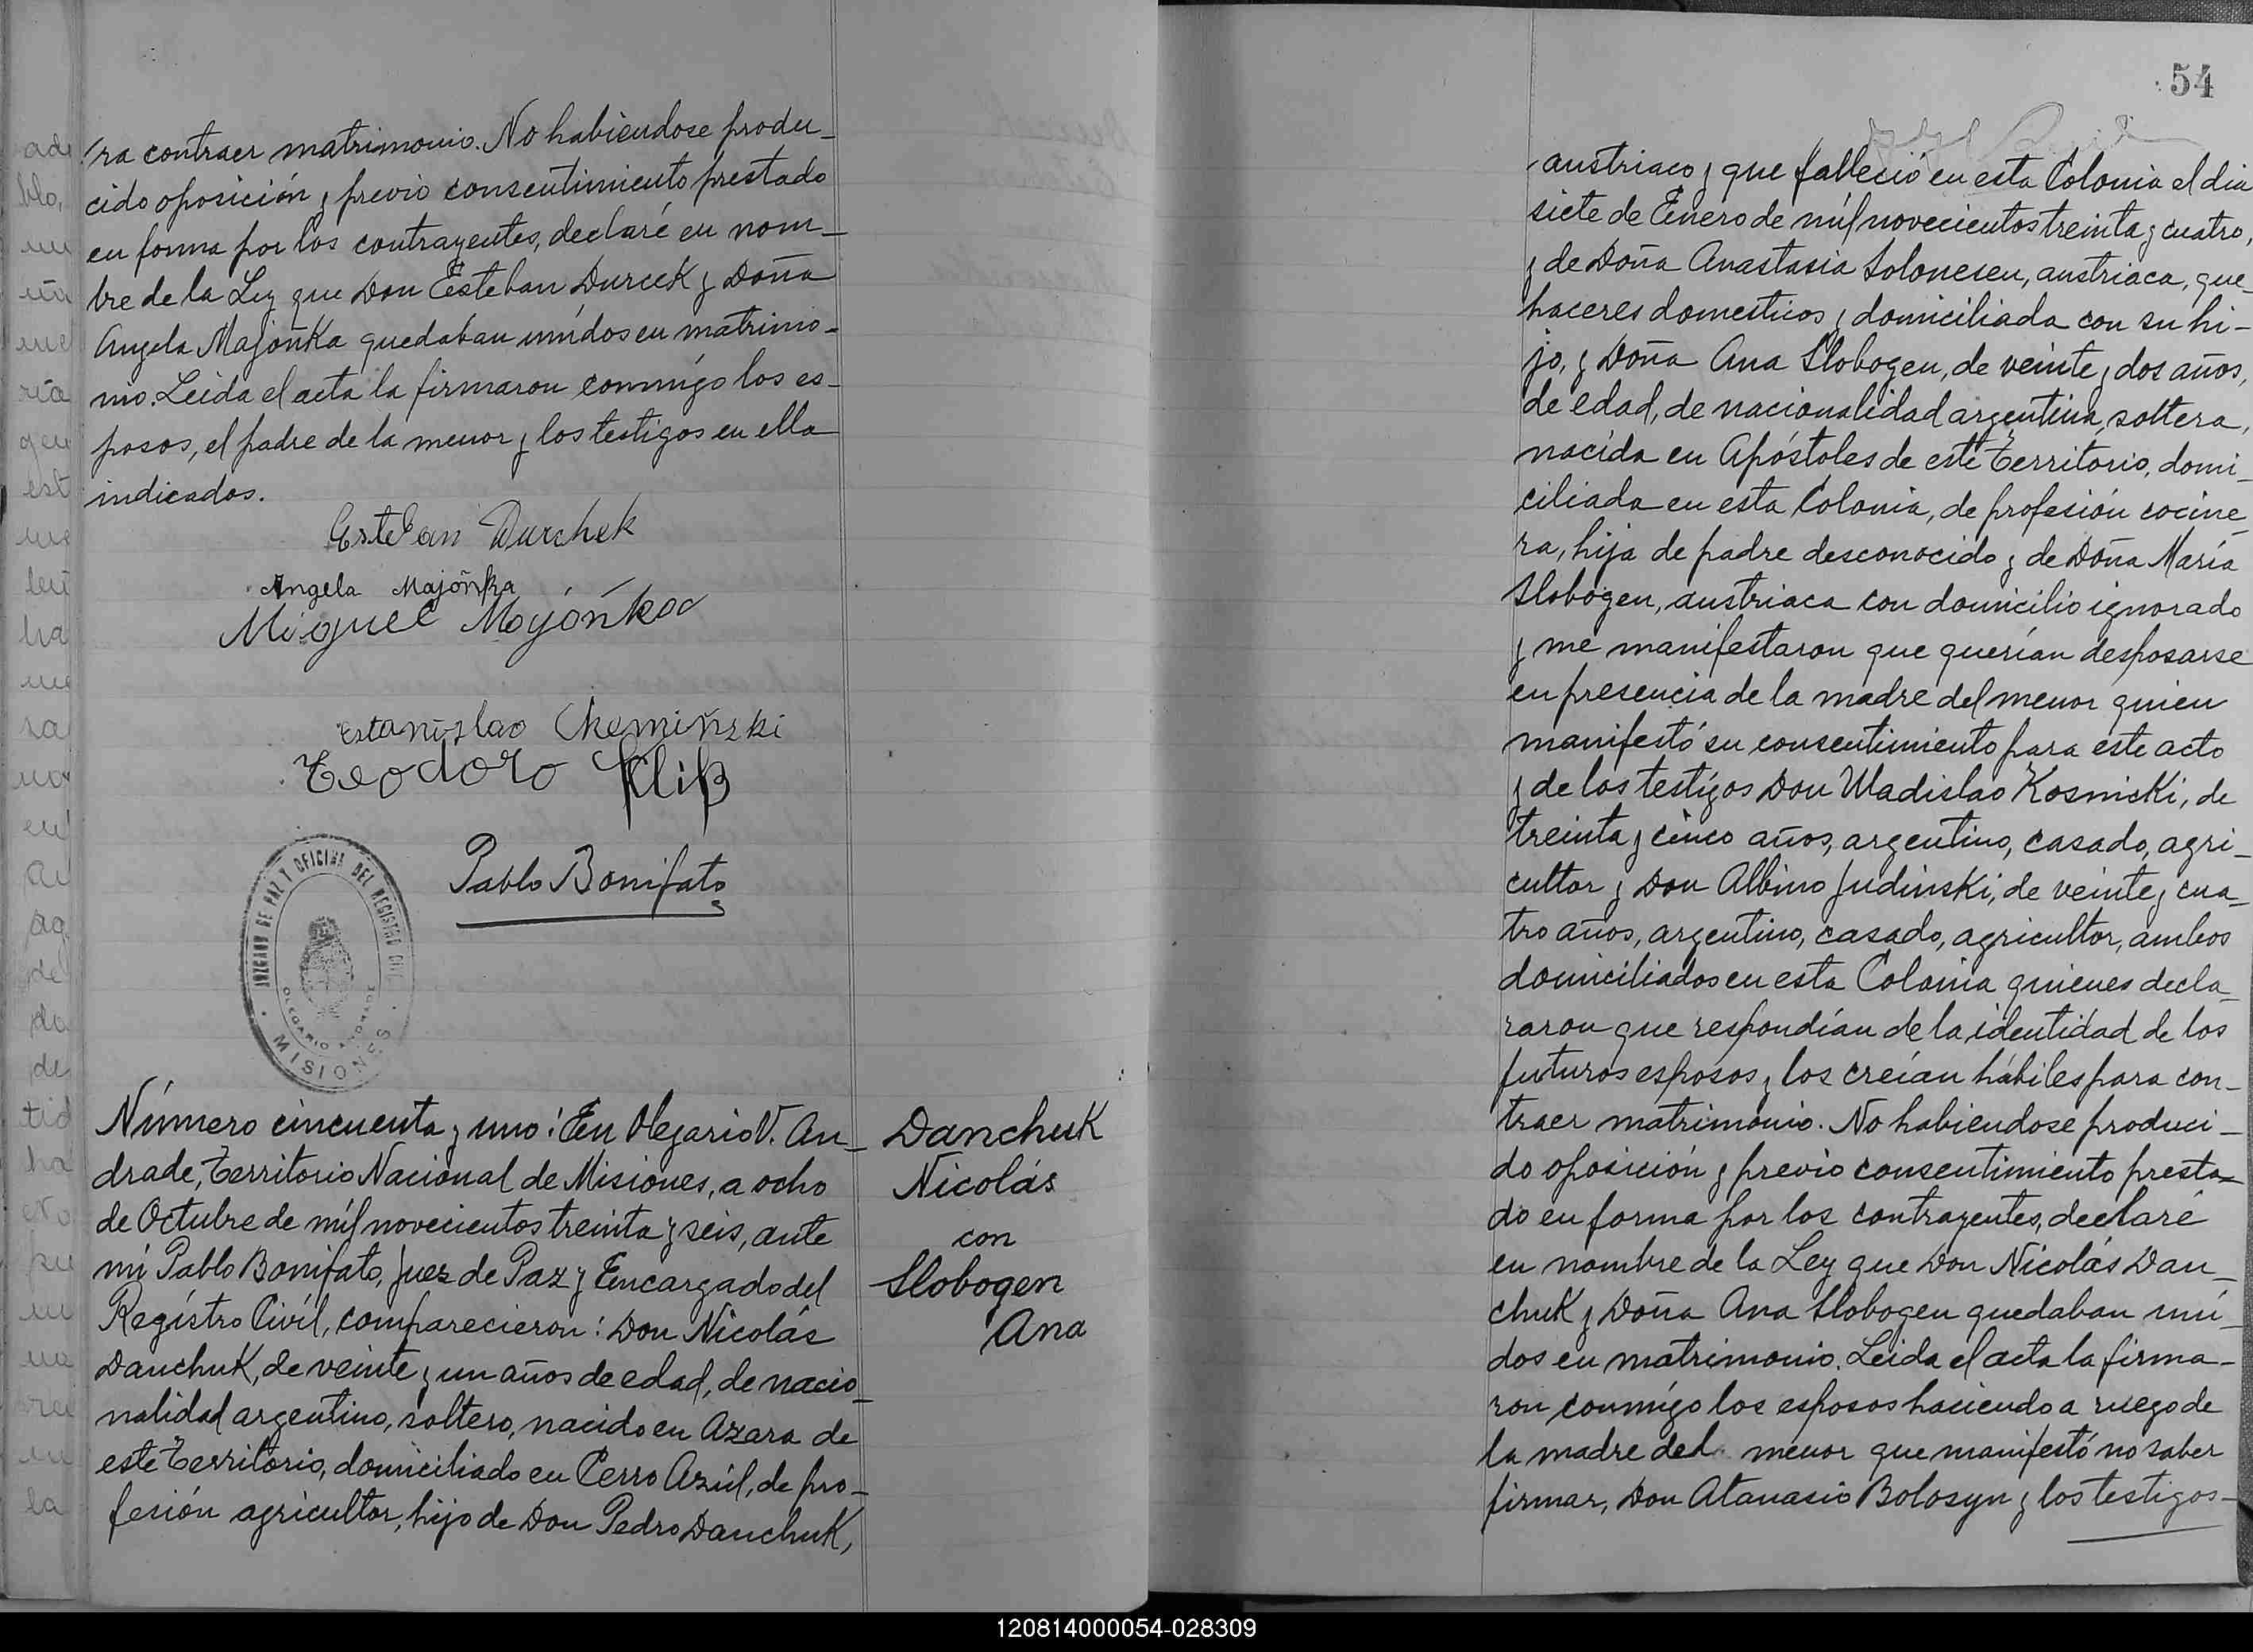 ra contraer matrimonio. No habiendose produ_
cido oposición y previo consentimiento prestado
en forma por los contrayentes, declaré en nom_
bre de la Ley que Don Esteban Durcek y Doña
Angela Majoñka quedaban unídos en matrimo_
nio. Leida el acta la firmaron conmígo los es_
posos, el padre de la menor y los testigos en ella
indicados.
Esteban Durchek
Angela Majoñka
Miguel Mojónka
Estanislao Cheminski
Teodoro
Pablo Bonifato
JUZGADO DE PAZ Y OFICINA DEL REGISTRO CIVIL
OLEGARIO ANDRADE
MISIONES
Número cincuenta y uno: En Olegario V. An_
drade, Territorio Nacional de Misiones, a ocho
de Octubre de míl novecientos treinta y seis, ante
mi Pablo Bonifato, Juez de Paz y Encargado del
Regístro Civíl, comparecieron: Don Nicolás
Danchuk, de veinte y un años de edad, de nacio_
nalidad argentino, soltero, nacido en Azara de
este Territorio, domiciliado en Cerro Azúl, de pro_
fesión agricultor, hijo de Don Pedro Danchuk,
Danchuk
Nicolás
con
Slobogen
Ana
54
austriaco y que falleció en esta Colonia el dia
siete de Enero de míl novecientos treinta y cuatro,
y de Doña Anastasia Solonesen, austriaca, que_
haceres domesticos y domiciliada con su hi_
jo, y Doña Ana Slobogen, de veinte y dos años,
de edad, de nacionalidad argentina, soltera,
nacída en Apóstoles de este Territorio, domi_
ciliada en esta Colonia, de profesión cocine_
ra, hija de padre desconocido y de Doña María
Slobogen, austriaca con domicilio ignorado
y me manifestaron que querían desposarse
en presencia de la madre del menor quien
manifestó su consentimiento para este acto
y de los testígos Don Wladislao Kosnicki, de
treinta y cinco años, argentino, casado, agri_
cultor y Don Albino Judinski, de veinte y cua_
tro años, argentino, casado, agricultor, ambos
domiciliados en esta Colonia quienes decla_
raron que respondían de la identidad de los
futuros esposos y los creían hábiles para con_
traer matrimonio. No habiendose produci_
do oposición y previo consentimiento presta_
do en forma por los contrayentes, declaré
en nombre de la Ley que Don Nicolás Dan_
chuk y Doña Ana Slobogen quedaban uní_
dos en matrimonio. Leida el acta la firma_
ron conmígo los esposos haciendo a ruego de
la madre del menor que manifestó no saber
firmar, Don Atanasio Bolosyn y los testigos_
120814000054-028309